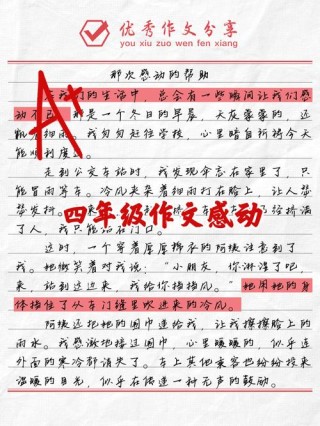 优秀作文分享
you xiu zuo wen fen xiang
那次感动的帮助
A+
在我们的生活中，总会有一些瞬间让我们感
动不已。那是一个冬日的早晨，天灰蒙蒙的，还
飘着细雨。我匆匆赶往学校，心里暗自祈祷今天
能顺利度过。
走到公交车站时，我发现伞忘在家里了，只
能冒雨等车。冷风夹杂着细雨打在脸上，让人瑟
瑟发抖。
四年级作文感动
了人，我只能站在门口。
这时，一个穿着厚厚棉衣的阿姨注意到了
我。她微笑着对我说：“小朋友，你淋湿了吧，
来，站到这边来，我给你挡挡风。”她用她的身
体挡住了从车门缝里吹进来的冷风。
阿姨还把她的围巾递给我，让我擦擦脸上的
雨水。我感激地接过围巾，心里暖暖的，似乎连
外面的寒冷都消失了。车上其他乘客也纷纷投来
温暖的目光，似乎在传递一种无声的鼓励。